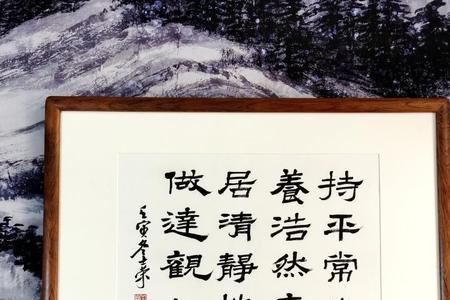 持平常
養浩然
居清靜
做達觀
壬寅冬榮